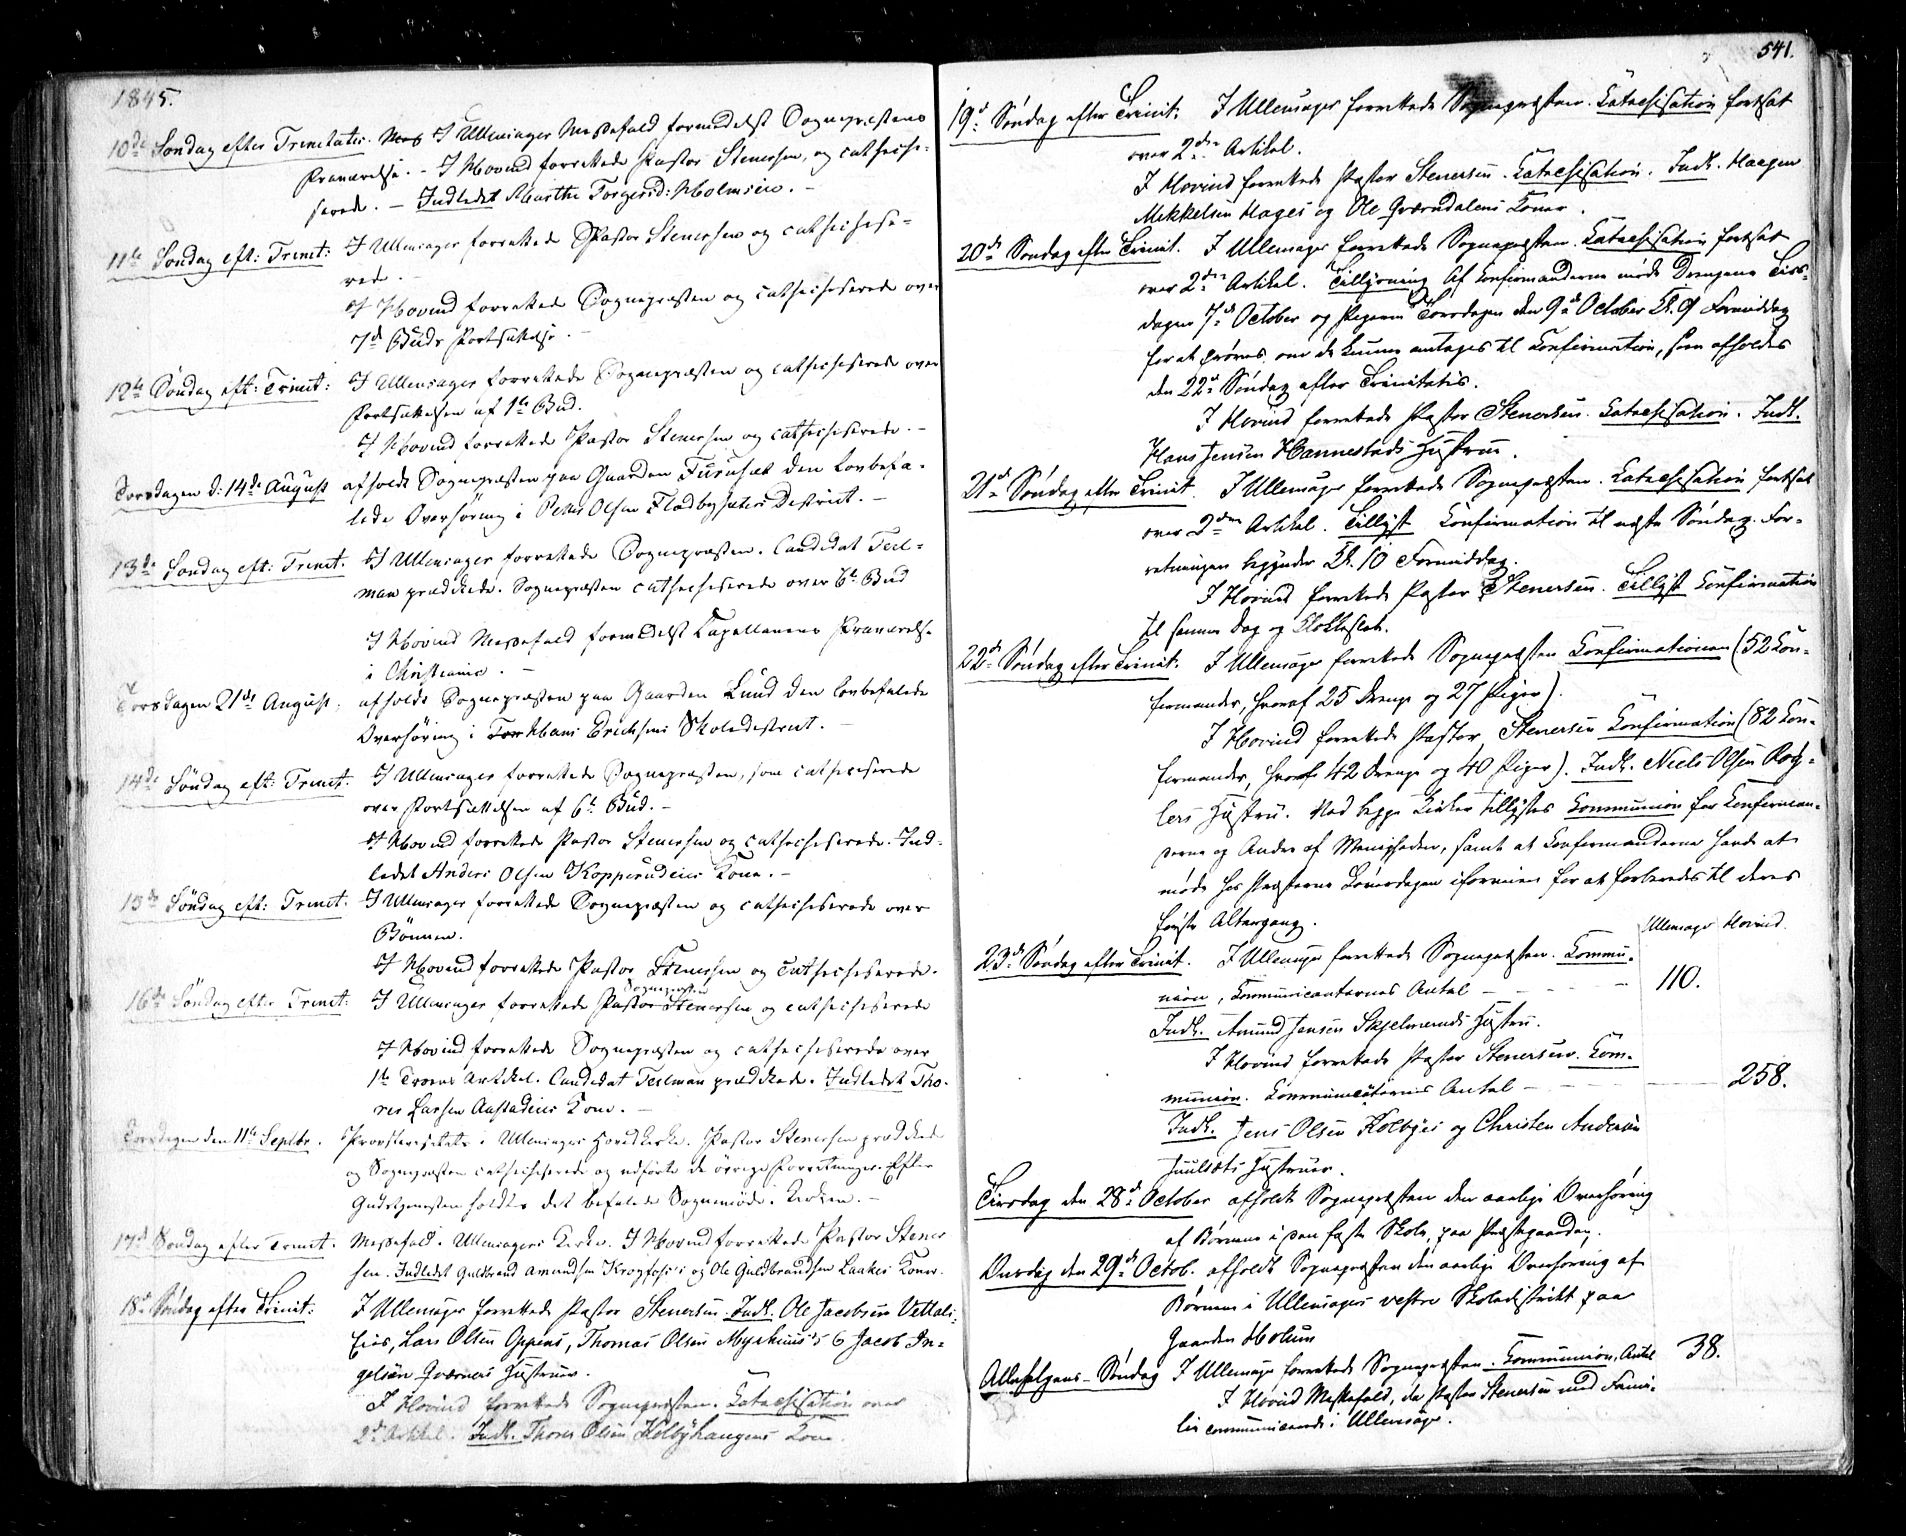 1845.
10de Søndag efter Trinitatis. I Ullensager Messefald formedelst Sognepræstens
Fraværelse. – I Hovind forrettede Pastor Stenersen, og cathechi-
serede. – Indledet Marthe Torgersd: Holmsien. –
11te Søndag eft: Trinit: I Ullensager forrettede Pastor Stenersen og cathechise-
rede.
I Hovind forrettede Sognepræsten og cathechiserede over
7d Buds Fortsættelse. –
12te Søndag eft: Trinit: I Ullensager forrettede Sognepræsten og cathechiserede over
Fortsættelsen af 1te Bud.
I Hovind forrettede Pastor Stenersen og cathechiserede. –
Torsdagen d: 14de August afholdt Sognepræsten paa Gaarden Furuset den lovbefa-
lede Overhøring i Peter Olsen Fladbyseters District. –
13de Søndag eft: Trinit. I Ullensager forrettede Sognepræsten. Candidat Teil-
man prædikede. Sognepræsten cathechiserede over 6te Bud
I Hovind Messefald formedelst Capellanens Fraværelse
i Christiania. –
Torsdagen 21de August. afholdt Sognepræsten paa Gaarden Lund den lovbefalede
Overhøring i Hans Erichsens Skoledistrict. –
14de Søndag eft: Trinit. I Ullensager forrettede Sognepræsten, som catheciserede
over Fortsættelsen af 6te Bud. –
I Hovind forrettede Pastor Stenersen og cathechiserede. Ind-
ledet Anders Olsen Kopperudeies Kone. –
15de Søndag eft: Trinit. I Ullensager forrettede Sognepræsten og cathechiserede over
Bønnen.
I Hovind forrettede Pastor Stenersen og cathechiserede.
Sognepræsten
16de Søndag efter Trinit: I Ullensager forrettede Pastor Stenersen og cathechiserede
I Hovind forrettede Sognepræsten og cathechiserede over
1te Troens Artikel. Candidat Teilman prædikede. Indledet Tho-
res Larsen Aastadeies Kone. –
Torsdagen den 11te Septbr. Provstevisitats i Ullensagers Hovedkirke. Pastor Stenersen prædikede
og Sognepræsten cathechiserede og udførte de øvrige Forretninger. Efter
Gudstjenesten holdtes det befalede Sognemøde i Kirken. –
17de Søndag efter Trinit. Messefald i Ullensagers Kirke. I Hovind forrettede Pastor Stener
sen. Indledet Guldbrand Amundsen Krogfosi's og Ole Guldbrandsen Laakes Koner.
18de Søndag efter Trinit: I Ullensager forrettede Pastor Stenersen. Indl. Ole Jacobsen Vettali-
Eies, Lars Olsen Oppens, Thomas Olsen Myrhuus's & Jacob In-
gelsen Qværnes Hustruer.
I Hovind forrettede Sognepræsten. Katechisation over
2d Artikel. Indl. Thores Olsen Kolbyhaugens Kone.
541.
19d Søndag efter Trinit. I Ullensager forrettede Sognepræsten. Katechisation fortsat
over 2den Artikel.
I Hovind forrettede Pastor Stenersen. Katechisation. Indl. Haagen
Mikkelsen Hages og Ole Qværndalens Koner.
20de Søndag efter Trinit. I Ullensager forrettede Sognepræsten. Katechisation fortsat
over 2den Artikel. Tillysning Af Confirmanderne møde Drengene Tirs-
dagen 7de October og Pigerne Torsdagen den 9de October Kl. 9 Formiddag
for at prøves om de kunne antages til Confirmation, som afholdes
den 22de Søndag efter Trinitatis.
I Hovind forrettede Pastor Stenersen. Katechisation. Indl.
Hans Jensen Hannestads Hustrue.
21de Søndag efter Trinit. I Ullensager forrettede Sognepræsten. Katechisation fortsat
over 2den Artikel. Tillyst Confirmation til næste Søndag. For-
retningen begynder Kl. 10 Formiddag.
I Hovind forrettede Pastor Stenersen. Tillyst Confirmation
til samme Dag og Klokkeslet.
22de Søndag efter Trinit. I Ullensager forrettede Sognepræsten Confirmationen (52 Con-
firmander, hvoraf 25 Drenge og 27 Piger).
I Hovind forrettede Pastor Stenersen Confirmation (82 Con-
firmander, hvoraf 42 Drenge og 40 Piger). Indl. Niels Olsen Rog-
lers Hustru. Ved begge Kirker tillystes Communion for Confirman-
derne og Andre af Menigheden, samt at Confirmanderne havde at
møde hos Præsterne Løverdagen iforveien for at forberedes til deres
første Altergang.
Ullensager Hovind.
23de Søndag efter Trinit. I Ullensager forrettede Sognepræsten. Commu-
nion, Communicanternes Antal – – – – 110.
Indl. Amund Jensen Skjelmeruds Hustru.
I Hovind forrettede Pastor Stenersen. Com-
munion. Communicanternes Antal – – – 258.
Indl. Jens Olsen Kolbyes og Christen Andersen
Juulsæts Hustruer.
Tirsdag den 28de October afholdt Sognepræsten den aarlige Overhøring
af Børnene i den faste Skole, paa Præstegaarden.
Onsdag den 29de Octob. afholdt Sognepræsten den aarlige Overhøring af
Børnene i Ullensagers vestre Skoledistrikt paa
Gaarden Holum
Allehelgens-Søndag I Ullensager forrettede Sognepræsten. Communion, Antal 38.
I Hovind Messefald, da Pastor Stenersen med Fami-
lie communicerede i Ullensager.